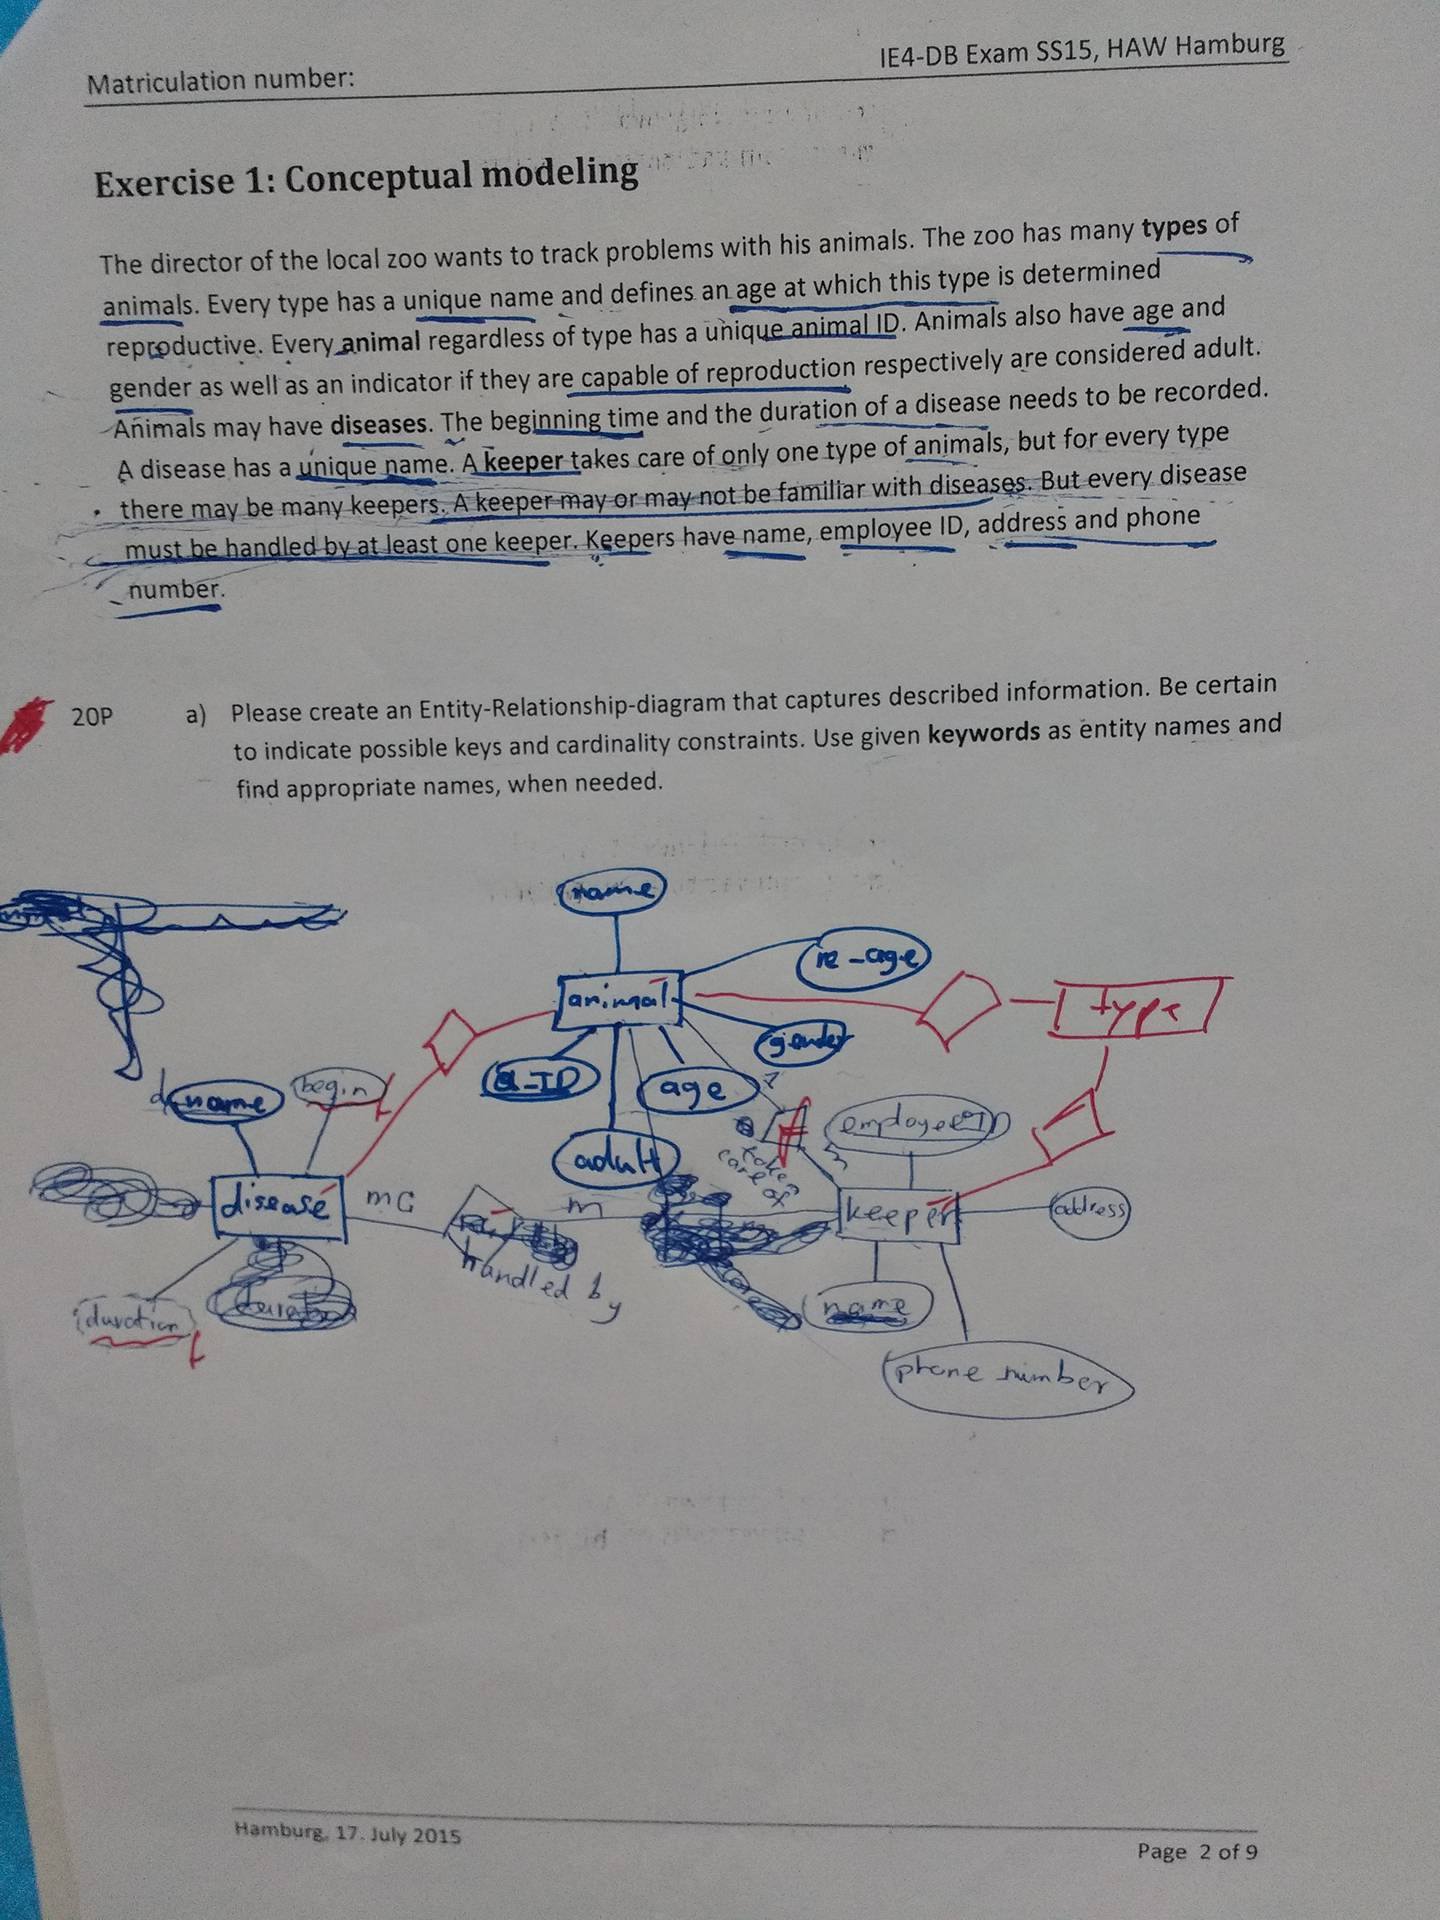 IE4-DB Exam SS15, HAW Hamburg
Matriculation number:
Exercise 1: Conceptual modeling
The director of the local zoo wants to track problems with his animals. The zoo has many types of
animals. Every type has a unique name and defines an age at which this type is determined
reproductive. Every animal regardless of type has a unique animal ID. Animals also have age and
gender as well as an indicator if they are capable of reproduction respectively are considered adult.
Animals may have diseases. The beginning time and the duration of a disease needs to be recorded.
A disease has a unique name. A keeper takes care of only one type of animals, but for every type
there may be many keepers. A keeper may or may not be familiar with diseases. But every disease
must be handled by at least one keeper. Keepers have name, employee ID, address and phone
number.
20P a) Please create an Entity-Relationship-diagram that captures described information. Be certain
to indicate possible keys and cardinality constraints. Use given keywords as entity names and
find appropriate names, when needed.
name
re-age
animal
type
gender
a-ID
age
name
begin
adult
employee ID
takes
care of
disease
mc
m
keeper
address
handled by
duration
name
phone number
Hamburg, 17. July 2015
Page 2 of 9